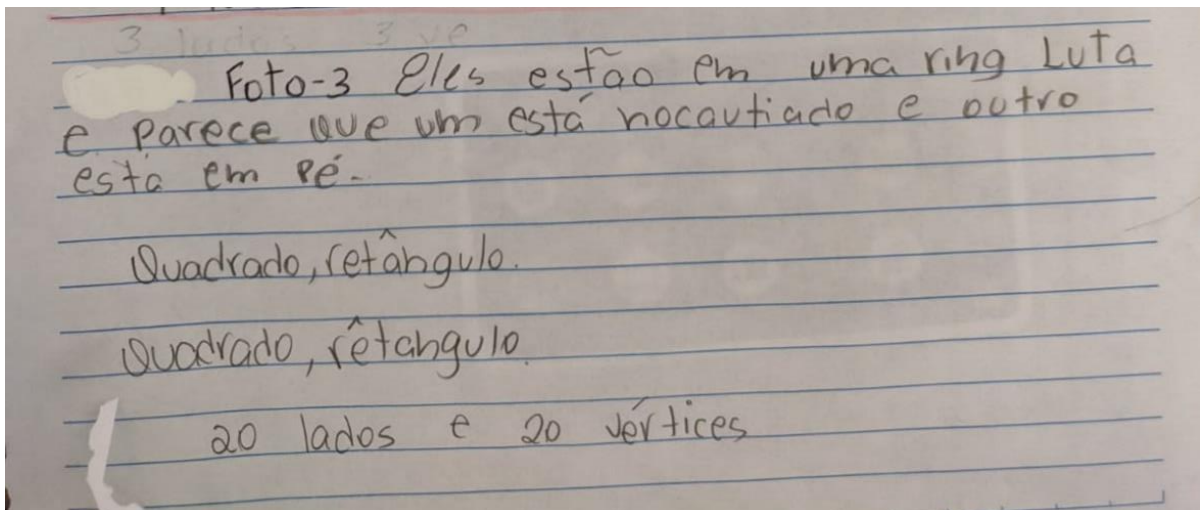 3 lados 3 ve
Foto-3 Eles estão em uma ring Luta
e parece que um está nocautiado e outro
está em pé.
Quadrado, retângulo.
Quadrado, rêtangulo.
20 lados e 20 vértices